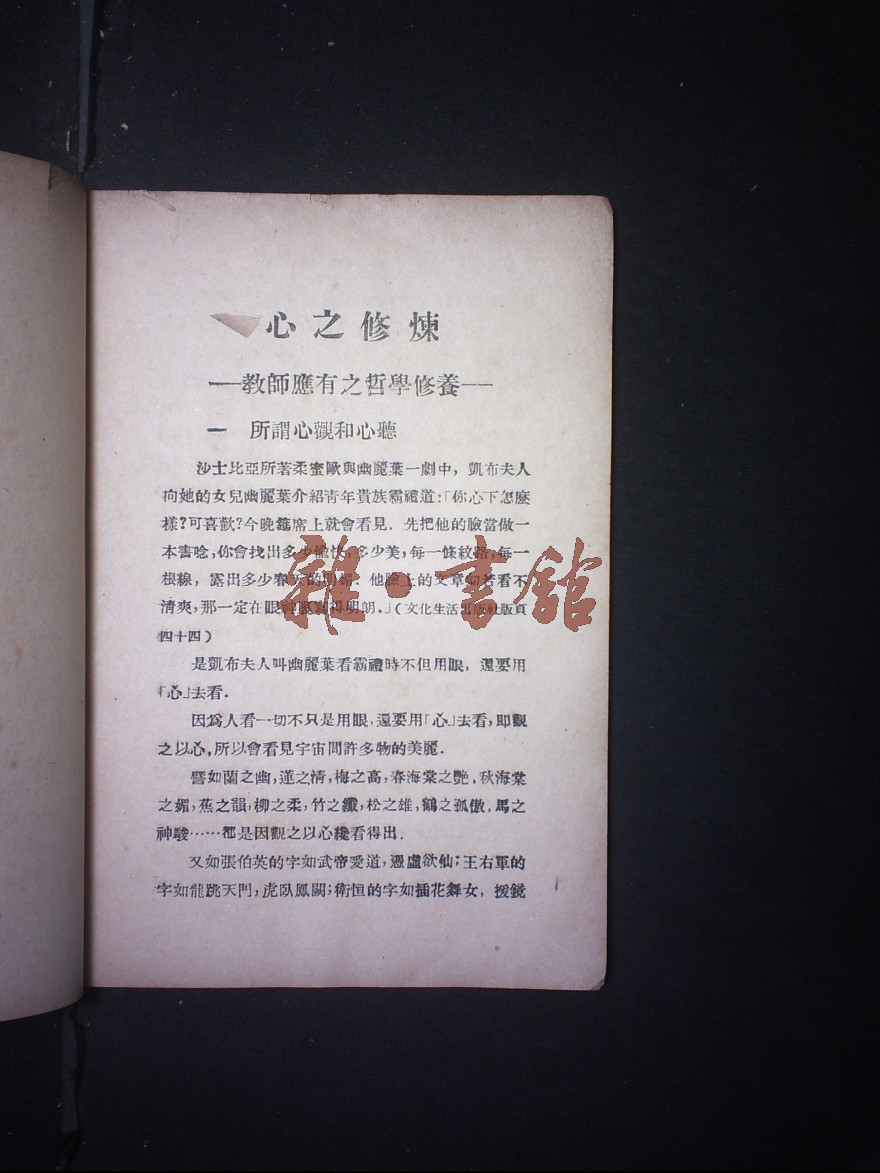 心之修煉
——教師應有之哲學修養——
一 所謂心觀和心聽
沙士比亞所著柔蜜歐與幽麗葉一劇中，凱布夫人
向她的女兒幽麗葉介紹青年貴族霸禮道：「你心下怎麼
樣？可喜歡？今晚筵席上就會看見．先把他的臉當做一
本書唸，你會找出多少愉快，多少美，每一條紋路，每一
根線，露出多少春天的明媚．他臉上的文章如若看不
清爽，那一定在眼神裏寫得明朗．」（文化生活出版社版頁
四十四）
是凱布夫人叫幽麗葉看霸禮時不但用眼，還要用
「心」去看．
因爲人看一切不只是用眼，還要用「心」去看，即觀
之以心，所以會看見宇宙間許多物的美麗．
譬如蘭之幽，蓮之清，梅之高，春海棠之艷，秋海棠
之媚，蕉之韻，柳之柔，竹之纖，松之雄，鶴之孤傲，馬之
神駿……都是因觀之以心纔看得出．
又如張伯英的字如武帝愛道，憑虛欲仙；王右軍的
字如龍跳天門，虎臥鳳闕；衛恒的字如插花舞女，援鏡
雜·書館